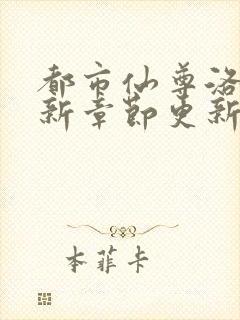 都市仙尊洛
新章節更新
本菲卡